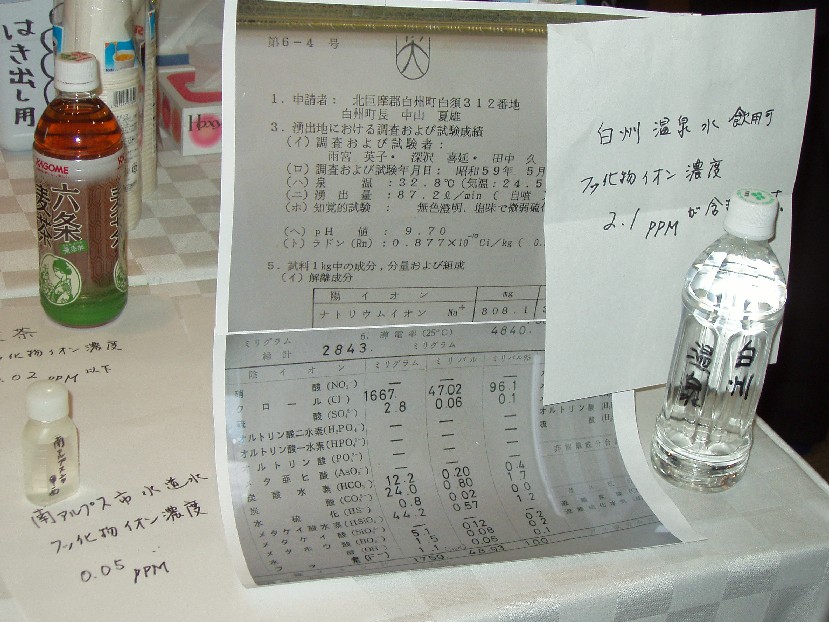 はき出し用
KAGOME
六条
麦茶
第6-4 号
1．申請者： 北巨摩郡白州町白須312番地
白州町長 中山 夏雄
3．湧出地における調査および試験成績
(イ)調査および試験者：
雨宮 英子・ 深沢 喜延・ 田中 久
(ロ)調査および試験年月日： 昭和59年 5月
(ハ)泉 温：32.8℃(気温：24.5
(ニ)湧 出 量：87.2ℓ/min ( 自噴
(ホ)知覚的試験： 無色澄明，塩味で微弱硫
(ヘ)pH 値： 9.70
(ト)ラドン(Rn)：0.877×10⁻¹⁰Ci/kg (
5．試料1kg中の成分，分量および組成
(イ)解離成分
陽 イ オ ン mg
ナトリウムイオン Na⁺ 808.1
ミリグラム 6. 導電率(25℃) 4840.
総 計 2843.
陰 イ オ ン ミリグラム ミリバル ミリバル%
硝 酸(NO₃⁻) — — —
クロール(Cl⁻) 1667. 47.02 96.1
硫 酸(SO₄²⁻) 2.8 0.06 0.1
オルトリン酸二水素(H₂PO₄⁻) — — —
オルトリン酸一水素(HPO₄²⁻) — — —
オルトリン酸(PO₄³⁻) — — —
メタ亜ヒ酸(AsO₂⁻)
炭酸水素(HCO₃⁻) 12.2 0.20 0.4
炭 酸(CO₃²⁻) 24.0 0.80 1.7
水 硫 化(HS⁻) 0.8 0.02 0.0
メタケイ酸水素(HSiO₃⁻) 44.2 0.57 1.2
白州 温泉水 飲用可
フッ化物イオン 濃度
2.1 PPM が含
白州
温泉
茶
フッ化物イオン 濃度
0.02 PPM 以下
南アルプス市
南アルプス市 水道水
フッ化物イオン 濃度
0.05 PPM